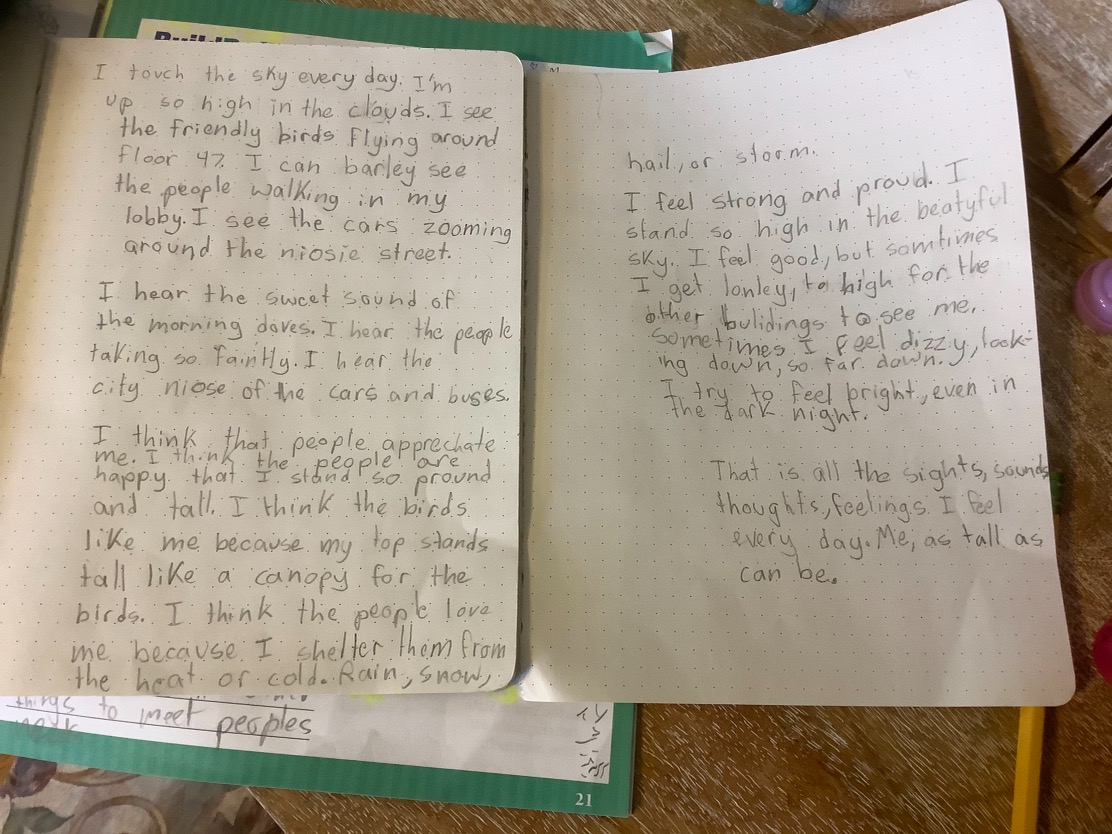 I touch the sky every day. I'm
up so high in the clouds. I see
the friendly birds flying around
floor 47. I can barley see
the people walking in my
lobby. I see the cars zooming
around the niosie street.
I hear the sweet sound of
the morning doves. I hear the people
taking so faintly. I hear the
city niose of the cars and buses.
I think that people apprechate
me. I think the people are
happy that I stand so pround
and tall. I think the birds
like me because my top stands
tall like a canopy for the
birds. I think the people love
me because I shelter them from
the heat or cold. Rain, snow,
things to meet peoples
hail, or storm.
I feel strong and proud. I
stand so high in the beatyful
sky. I feel good, but somtimes
I get lonley, to high for the
other bulidings to see me.
Sometimes I feel dizzy, look-
ing down, so far down.
I try to feel bright, even in
the dark night.
That is all the sights, sounds
thoughts, feelings I feel
every day. Me, as tall as
can be.
21